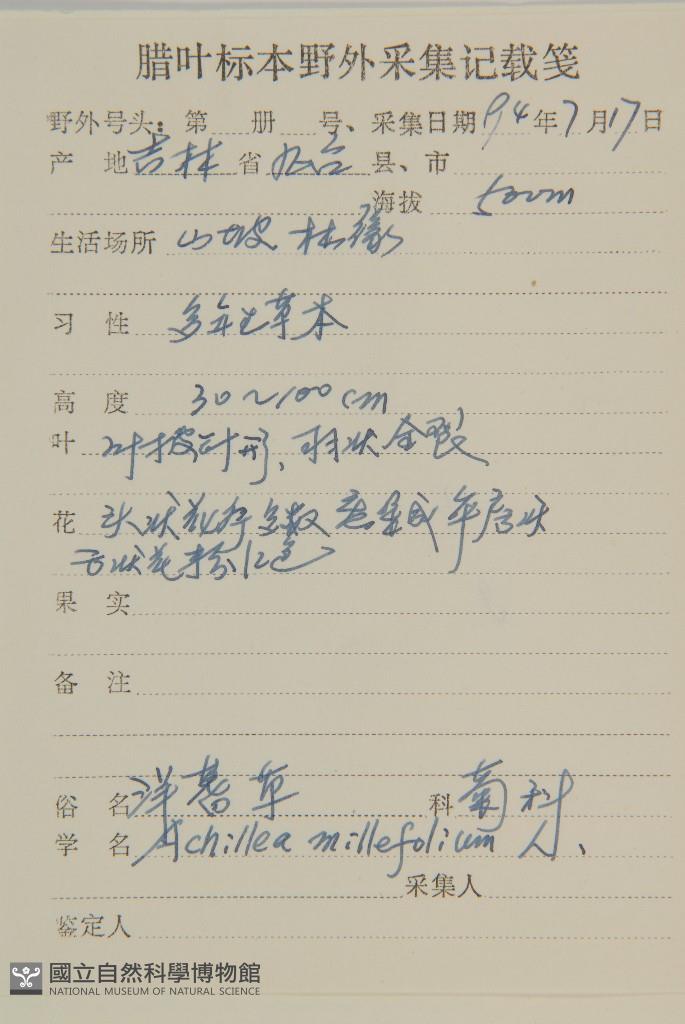 腊叶标本野外采集记载笺
野外号头：第 册 号、采集日期 94 年 7 月 17 日
产 地 吉林 省 九台 县、市
海拔 500m
生活场所 山坡 林缘
习 性 多年生草本
高 度 30～100cm
叶 叶披针形，羽状全裂
花 头状花序多数 密集成伞房状
舌状花粉红色
果 实
备 注
俗 名 洋蓍草 科 菊科
学 名 Achillea millefolium L.
采集人
鉴定人
國立自然科學博物館
NATIONAL MUSEUM OF NATURAL SCIENCE